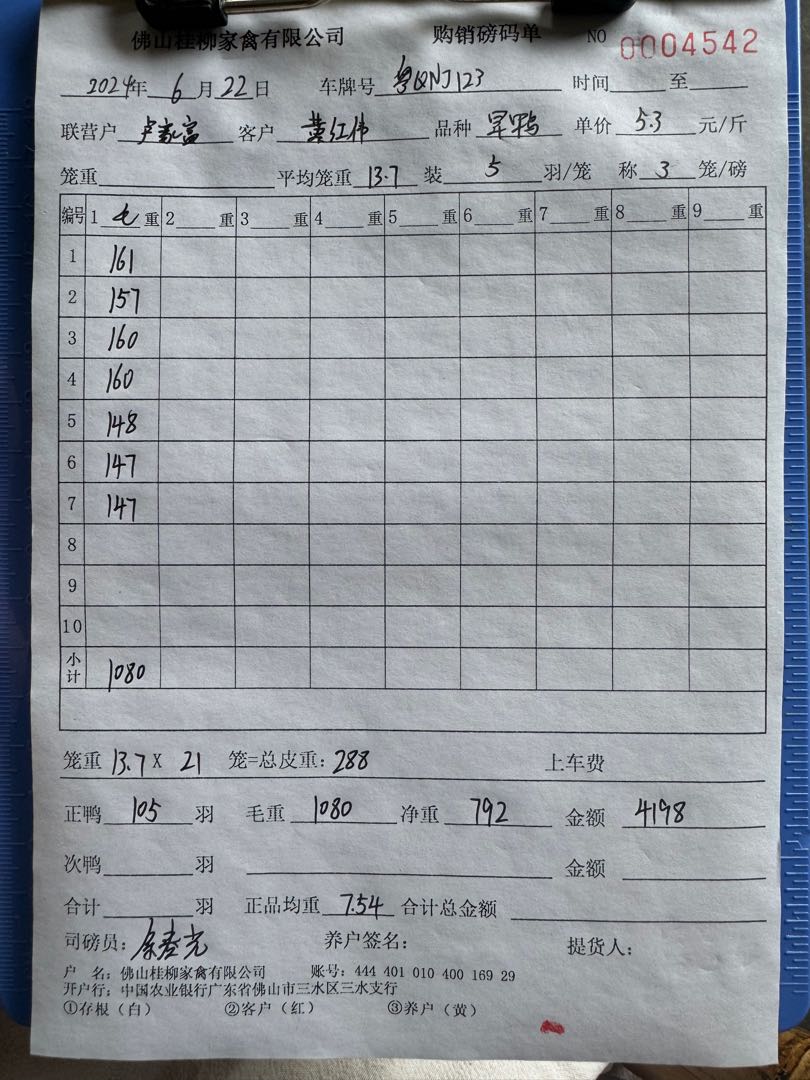 佛山桂柳家禽有限公司 购销磅码单 NO 0004542
2024年 6 月 22 日 车牌号 粤QNJ123 时间 至
联营户 卢家富 客户 黄红伟 品种 单价 5.3 元/斤
笼重 平均笼重 13.7 装 5 羽/笼 称 3 笼/磅
编号 1 毛 重 2 重 3 重 4 重 5 重 6 重 7 重 8 重 9 重
1 161
2 157
3 160
4 160
5 148
6 147
7 147
8
9
10
小计 1080
笼重 13.7 X 21 笼=总皮重: 288 上车费
正鸭 105 羽 毛重 1080 净重 792 金额 4198
次鸭 羽 金额
合计 羽 正品均重 7.54 合计总金额
司磅员: 养户签名: 提货人:
户 名: 佛山桂柳家禽有限公司 账号: 444 401 010 400 169 29
开户行: 中国农业银行广东省佛山市三水区三水支行
①存根（白） ②客户（红） ③养户（黄）